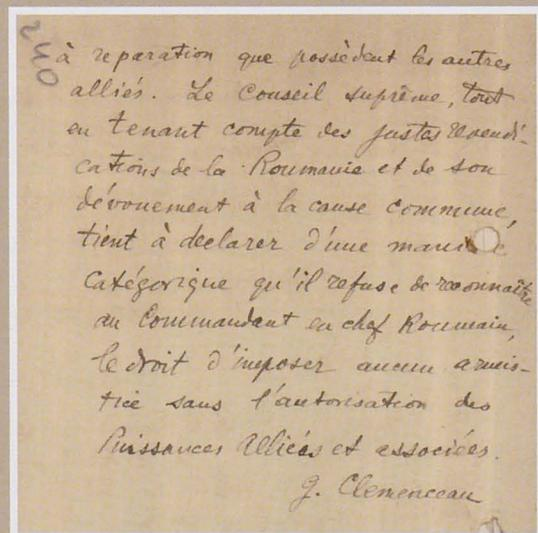 240
à reparation que possèdent les autres
alliés. Le Conseil suprême, tout
en tenant compte des justes revendi-
cations de la Roumanie et de son
dévouement à la cause commune,
tient à declarer d'une manière
catégorique qu'il refuse de reconnaître
au Commandant en chef Roumain,
le droit d'imposer aucun armis-
tice sans l'autorisation des
Puissances Alliées et associées.
G. Clemenceau